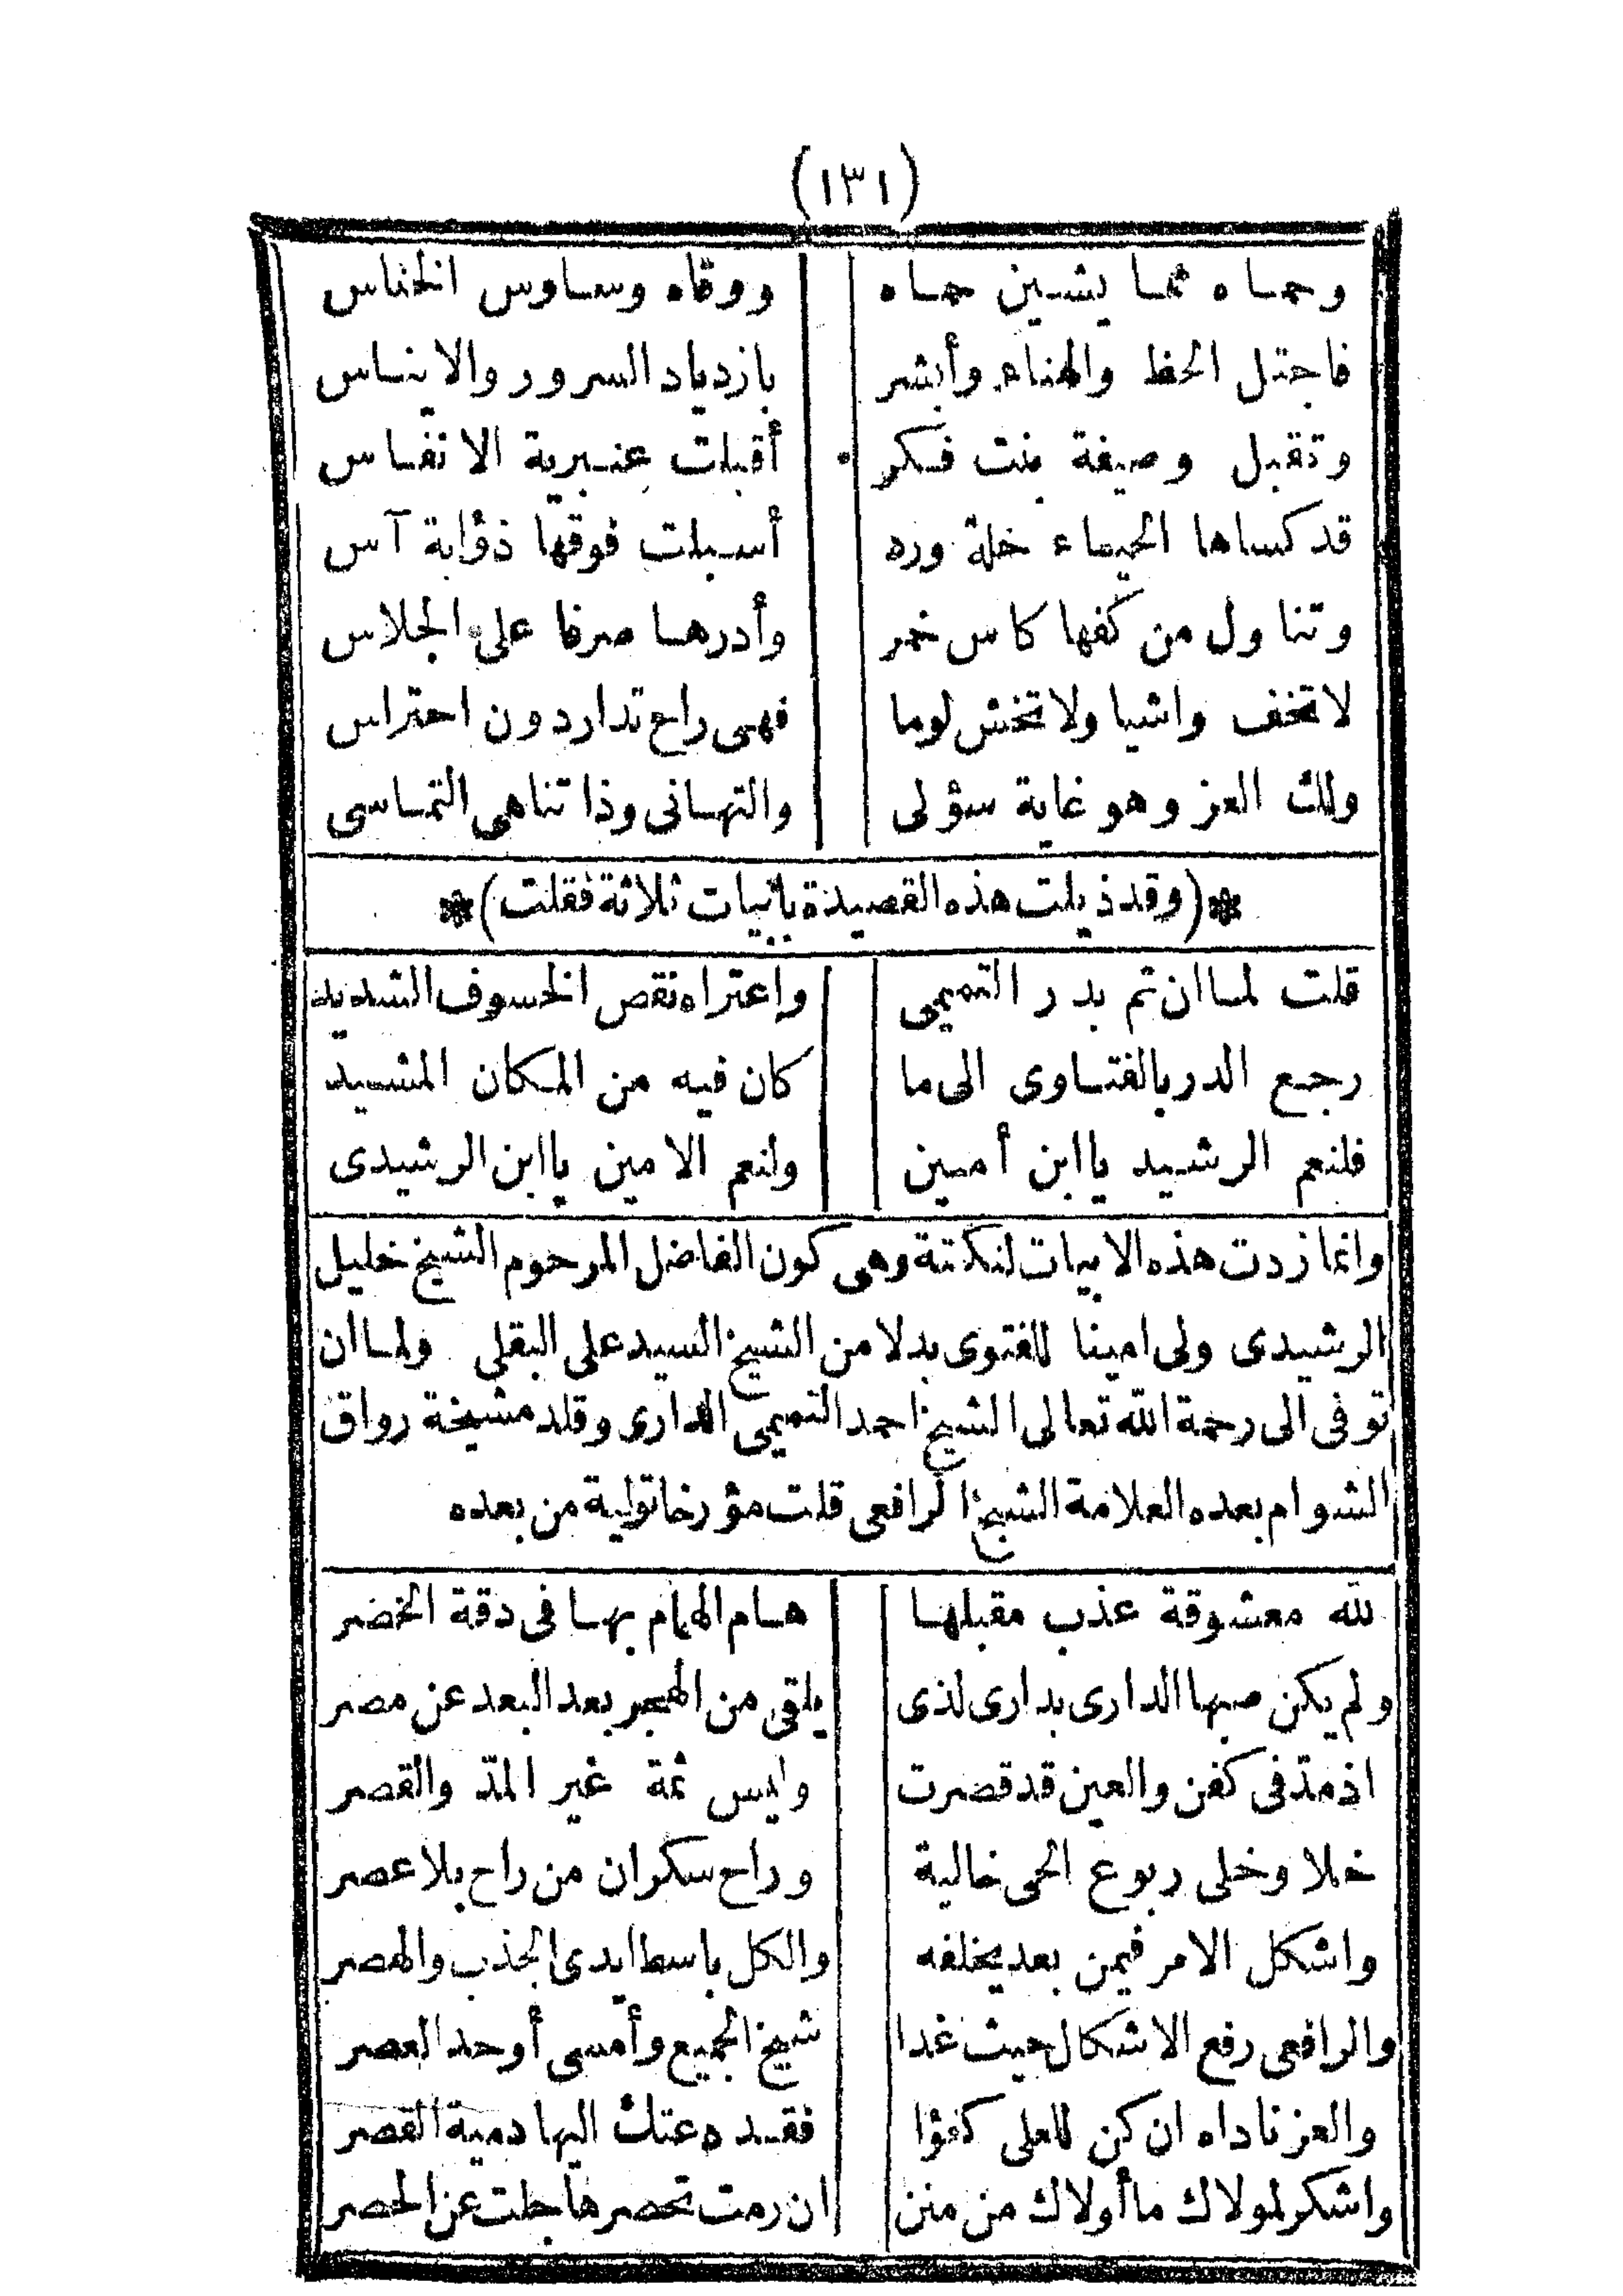 (١٣١)
وحماه مما يشين حماه ووقاه وساوس الخناس
فاجتل الحظ والهناء وأبشر بازدياد السرور والايناس
وتقبل وصيفة بنت فكر أقبلت عنبرية الانفاس
قد كساها الحياء حلة ورد أسبلت فوقها ذؤابة آس
وتناول من كفها كاس خمر وأدرها صرفا على الجلاس
لاتخف واشيا ولاتخش لوما فهى راح تدار دون احتراس
ولك العز وهو غاية سؤلى والتهانى وذا تناهى التماسى
*(وقد ذيلت هذه القصيدة بأبيات ثلاثة فقلت)*
قلت لما ان تم بدر التميمى واعتراه نقص الخسوف الشديد
رجع الدر بالفتاوى الى ما كان فيه من المكان المشيد
فلنعم الرشيد يا ابن أمين ولنعم الامين يا ابن الرشيدى
وانما زدت هذه الابيات لنكتة وهى كون الفاضل المرحوم الشيخ خليل
الرشيدى ولى امينا للفتوى بدلا من الشيخ السيد على البقلى ولما ان
توفى الى رحمة الله تعالى الشيخ احمد التميمى الدارى وقلد مشيخة رواق
الشوام بعده العلامة الشيخ الرافعى قلت مؤرخا توليه من بعده
لله معشوقة عذب مقبلها هام الهيام بها فى دقة الخضر
ولم يكن صبها الدارى بدارى لذى يلقى من الهجر بعد البعد عن مصر
اذ مدّ فى كفن والعين قد قصرت وليس ثمة غير المدّ والقصر
خلا وخلى ربوع الحى خالية وراح سكران من راح بلا عصر
واشكل الامر فيمن بعد يخلفه والكل باسط ايدى الجذب والهصر
والرافعى رفع الاشكال حيث غدا شيخ الجميع وأمسى أوحد العصر
والعز ناداه ان كن للعلى كفؤا فقد دعتك اليها دمية القصر
واشكر لمولاك ما أولاك من منن ان رمت تحصرها جلت عن الحصر